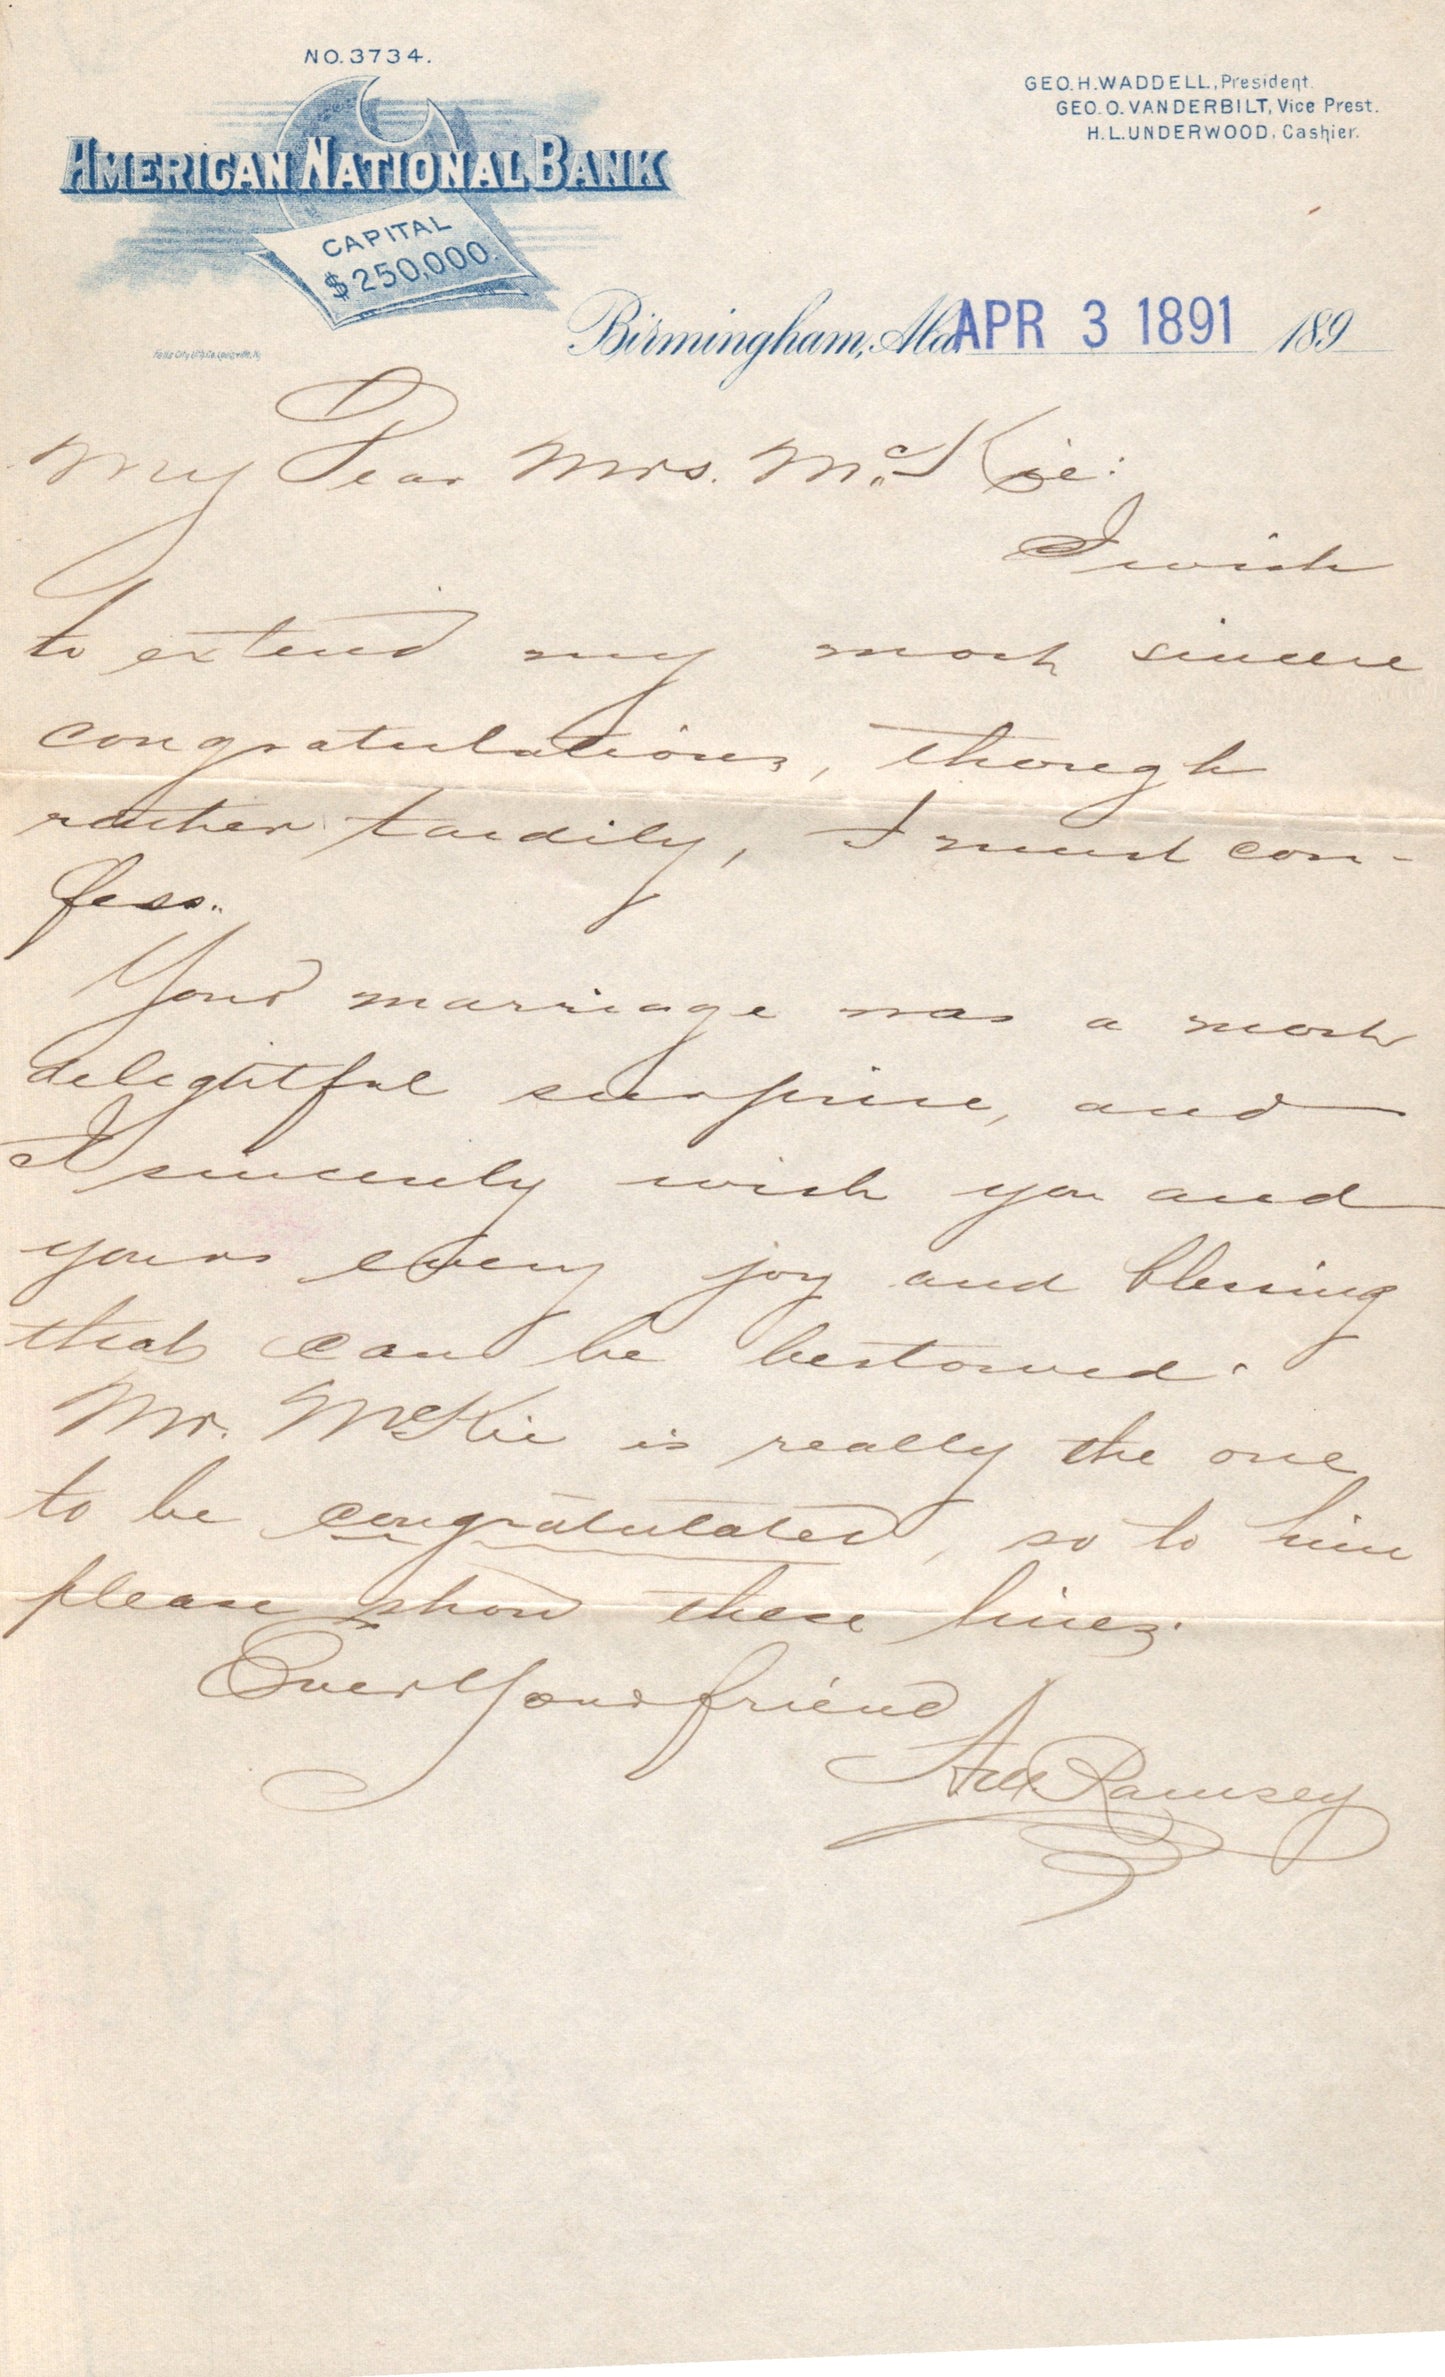 NO. 3734.
AMERICAN NATIONAL BANK
CAPITAL
$250,000.
GEO. H. WADDELL, President.
GEO. O. VANDERBILT, Vice Prest.
H. L. UNDERWOOD, Cashier.
Birmingham, Ala. APR 3 1891 189
My Dear Mrs. McKie:
I wish
to extend my most sincere
congratulations, though
rather tardily, I must con-
fess.
Your marriage was a most
delightful surprise, and
I sincerely wish you and
yours every joy and blessing
that can be bestowed.
Mr. McKie is really the one
to be congratulated, so to him
please show these lines.
Ever Your friend
Ramsey